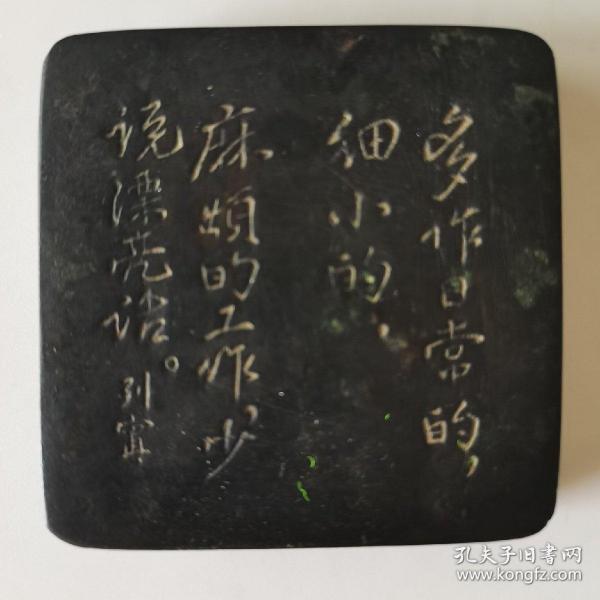 多作日常的，
细小的，
麻烦的工作，少
说漂亮话。列宁
孔夫子旧书网
www.kongfz.com